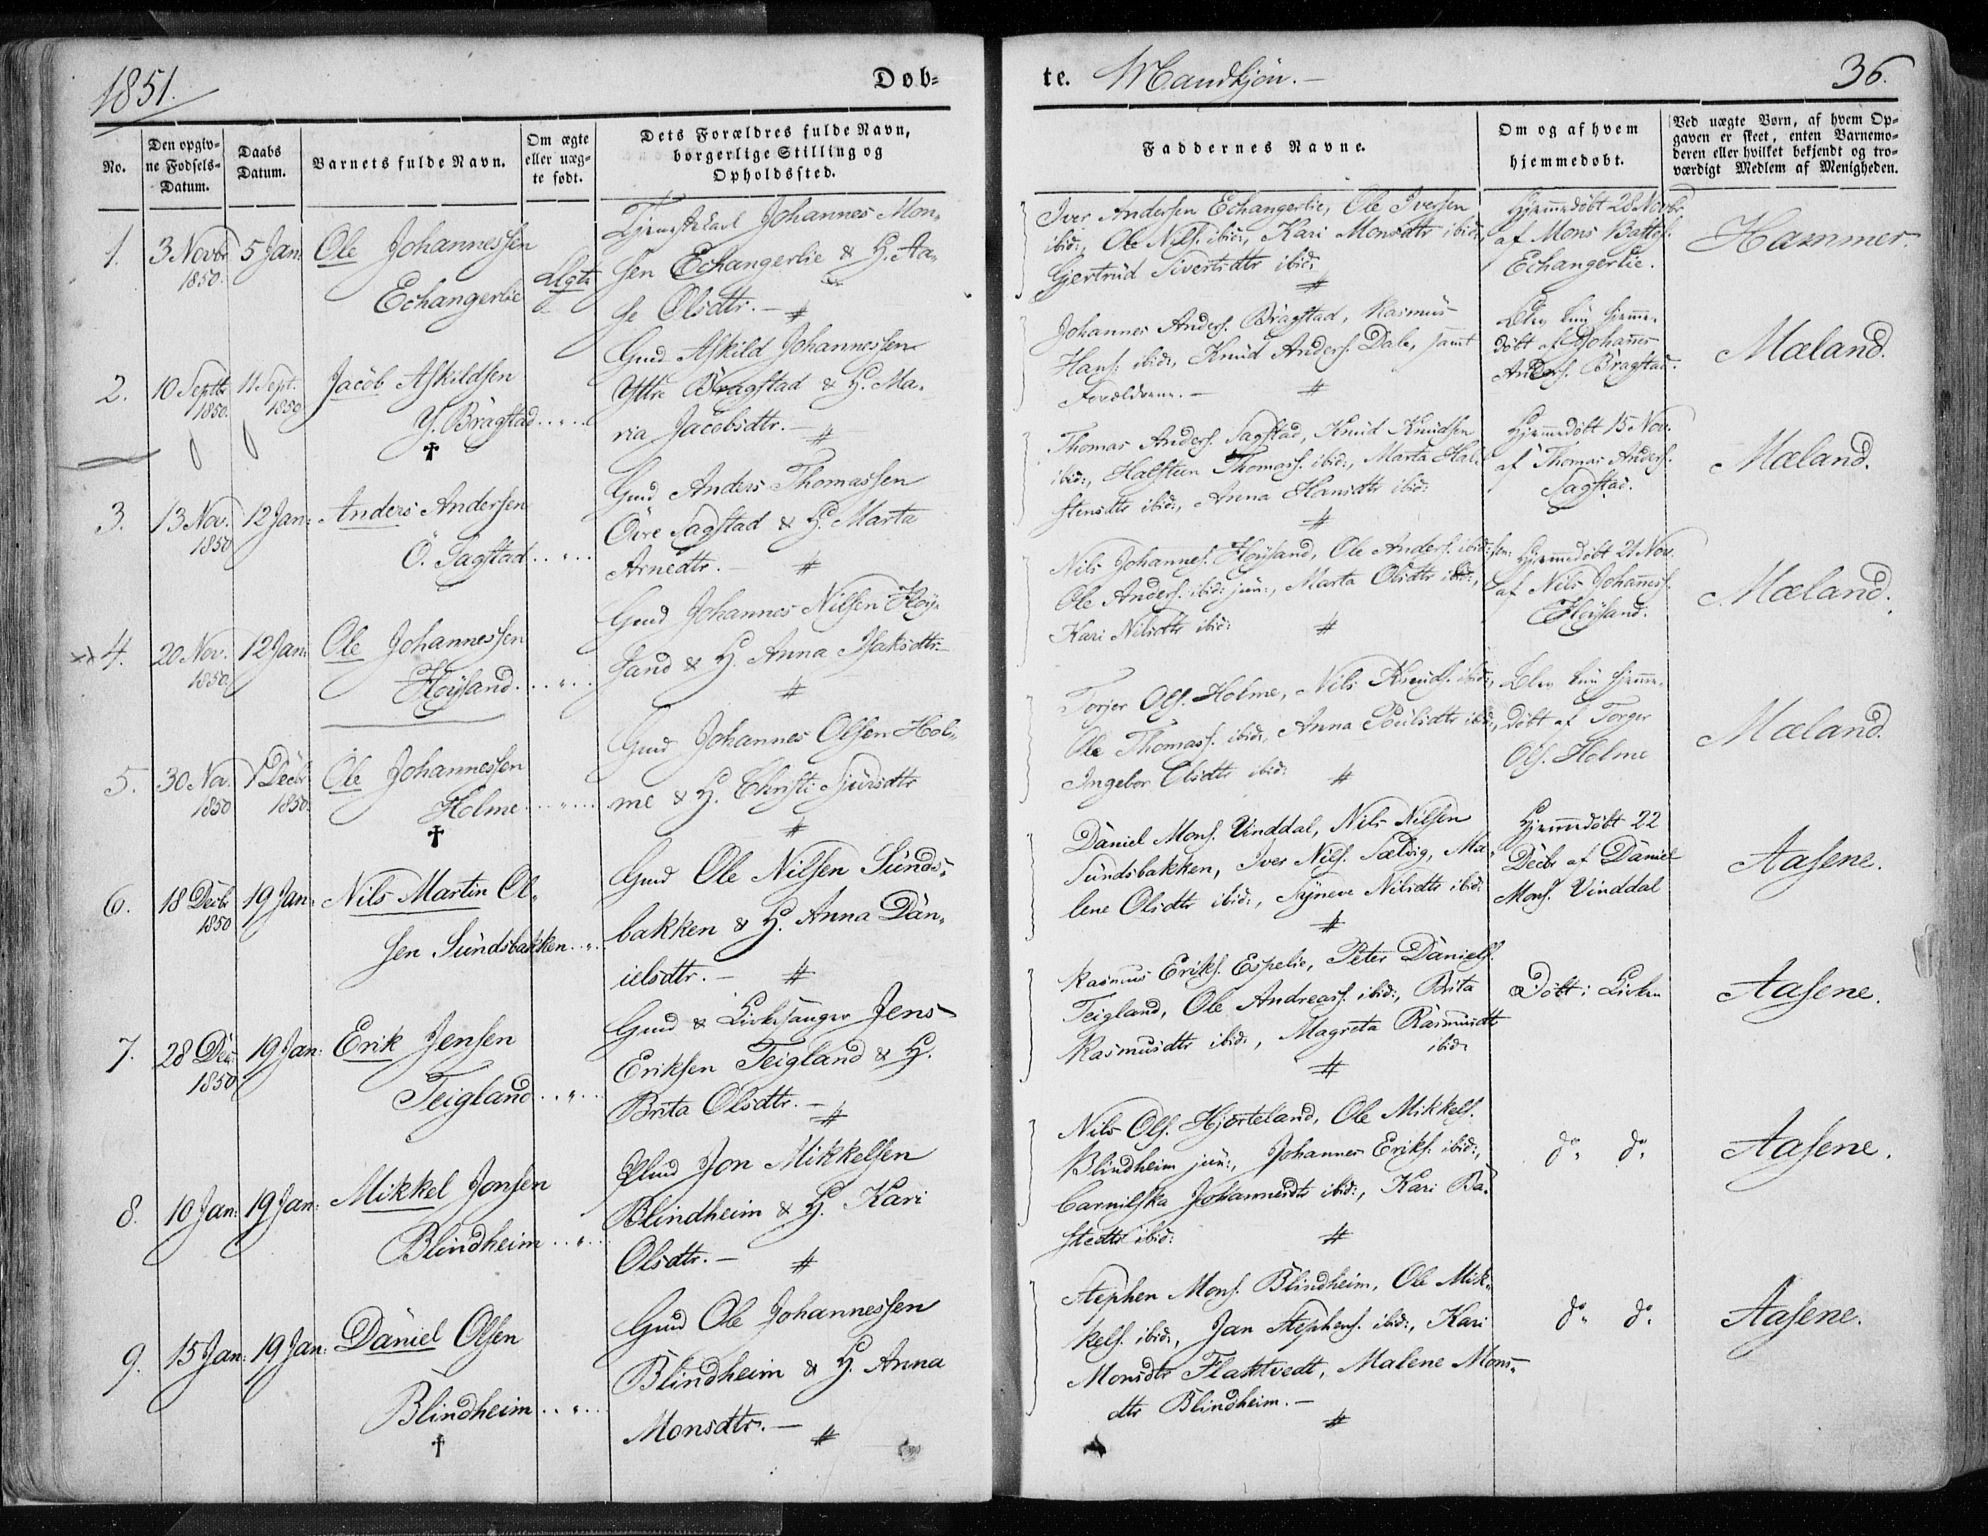 1851.
Døb-
te. Mandkjøn.-
36.
No.
Den opgiv-
ne Fødsels-
Datum.
Daabs
Datum.
Barnets fulde Navn.
Om ægte
eller uæg-
te født.
Dets Forældres fulde Navn,
borgerlige Stilling og
Opholdssted.
Faddernes Navne.
Om og af hvem
hjemmedøbt.
Ved uægte Børn, af hvem Op-
gaven er skeet, enten Barnemo-
deren eller hvilket bekjendt og tro-
værdigt Medlem af Menigheden.
1. 3 Novbr 5 Jan: Ole Johannessen
1850.
Echangerlie Ægte
Tjenestekarl Johannes Mon-
sen Echangerlie & H. Aa-
se Olsdtr. - #
Iver Andersen Echangerlie, Ole Iversen
ibid:, Ole Nils. ibid:, Kari Monsdtr ibid:,
Gjertrud Sivertsdtr ibid:
#
Hjemmedøbt 28 Novbr
af Mons
Echangerlie.
Hammer.
2. 10 Septbr 11 Sept. Jacob Askildsen
1850. 1850
Y. Bragstad .. " ..
†
Gmd Askild Johannessen
Yttre Bragstad & H. Ma-
ria Jacobsdtr. - #
Johannes Anders. Bragstad, Rasmus
Hans. ibid:, Knud Anders. Dale, samt
Forældrene. - #
Blev kun hjemme-
døbt af Johannes
Anders. Bragstad.
Mæland.
3. 13 Nov. 12 Jan: Anders Andersen
1850
Ö. Sagstad .. " ..
Gmd Anders Thomassen
Övre Sagstad & H. Marta
Arnedtr. - #
Thomas Anders. Sagstad, Knud Knudsen
ibid:, Halsteen Thomass. ibid:, Marta Hal-
stensdtr ibid:, Anna Hansdtr ibid:
#
Hjemmedøbt 15 Nov.
af Thomas Anders.
Sagstad.
Mæland.
4. 20 Nov. 12 Jan: Ole Johannessen
1850.
Høysand. .. " ..
Gmd Johannes Nilsen Høy-
sand & H. Anna Isaksdtr. -
#
Nils Johannes. Høysand, Ole Anders. ibid: sen:
Ole Anders. ibid: jun:, Marta Olsdtr ibid:,
Kari Nilsdtr ibid: #
Hjemmedøbt 21 Nov.
af Nils Johannes.
Høysand.
Mæland.
5. 30 Nov. 1 Decbr Ole Johannessen
1850 1850.
Holme .. " ..
†
Gmd Johannes Olsen Hol-
me & H. Christi Sjursdtr
#
Torjer Ols. Holme, Nils Knuds. ibid:,
Ole Thomass. ibid:, Anna Poulsdtr ibid:,
Ingebor Olsdtr ibid: #
Blev kun hjemme-
døbt af Torger
Ols. Holme
Mæland.
6. 18 Decbr 19 Jan: Nils Martin Ol-
1850
sen Sundsbakken .. " ..
Gmd Ole Nilsen Sunds-
bakken & H. Anna Dan-
ielsdtr. - #
Daniel Mons. Vinddal, Nils Nilsen
Sundsbakken, Iver Nils. Sælvig, Ma-
lene Olsdtr ibid:, Syneve Nilsdtr ibid:
#
Hjemmedøbt 22
Decbr af Daniel
Mons. Vinddal
Aasene.
7. 28 Dec. 19 Jan: Erik Jensen
1850
Teigland .. " ..
Gmd & Kirkesanger Jens
Eriksen Teigland & H.
Brita Olsdtr. -
#
Rasmus Eriks. Espelie, Peter Daniels.
Teigland, Ole Andreass. ibid:, Brita
Rasmusdtr ibid:, Magreta Rasmusdtr
ibid:
#
Døbt i Kirken
Aasene.
8. 10 Jan: 19 Jan: Mikkel Jonsen
Blindheim .. " ..
Plmd Jon Mikkelsen
Blindheim & H. Kari
Olsdtr. - #
Nils Ols. Hjorteland, Ole Mikkels.
Blindheim jun:, Johannes Eriks. ibid:,
Johannesdtr ibid:, Kari Ba-
stedtr ibid: #
do do
Aasene.
9. 15 Jan: 19 Jan: Daniel Olsen
Blindheim .. " ..
†
Gmd Ole Johannessen
Blindheim & H. Anna
Monsdtr. - #
Stephen Mons. Blindheim, Ole Mik-
kels. ibid:, Jan Stephens. ibid:, Kari
Monsdtr Flaktvedt, Malene Mons-
dtr Blindheim. -
#
do do
Aasene.